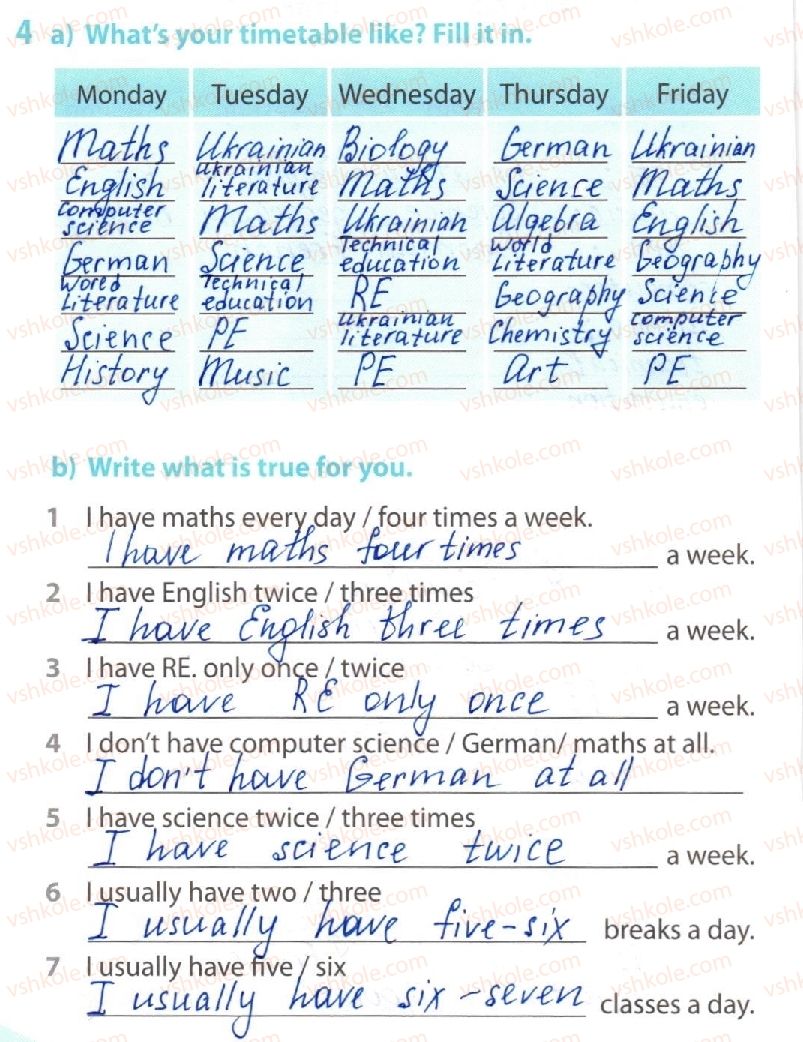 4 a) What's your timetable like? Fill it in.
Monday Tuesday Wednesday Thursday Friday
Maths Ukrainian Biology German Ukrainian
English Ukrainian literature Maths Science Maths
Computer science Maths Ukrainian Algebra English
German Science Technical education World Literature Geography
World Literature Technical education RE Geography Science
Science PE Ukrainian literature Chemistry Computer science
History Music PE Art PE
b) Write what is true for you.
1 I have maths every day / four times a week.
I have maths four times a week.
2 I have English twice / three times
I have English three times a week.
3 I have RE. only once / twice
I have RE only once a week.
4 I don't have computer science / German/ maths at all.
I don't have German at all
5 I have science twice / three times
I have science twice a week.
6 I usually have two / three
I usually have five-six breaks a day.
7 I usually have five / six
I usually have six-seven classes a day.
vshkole.com